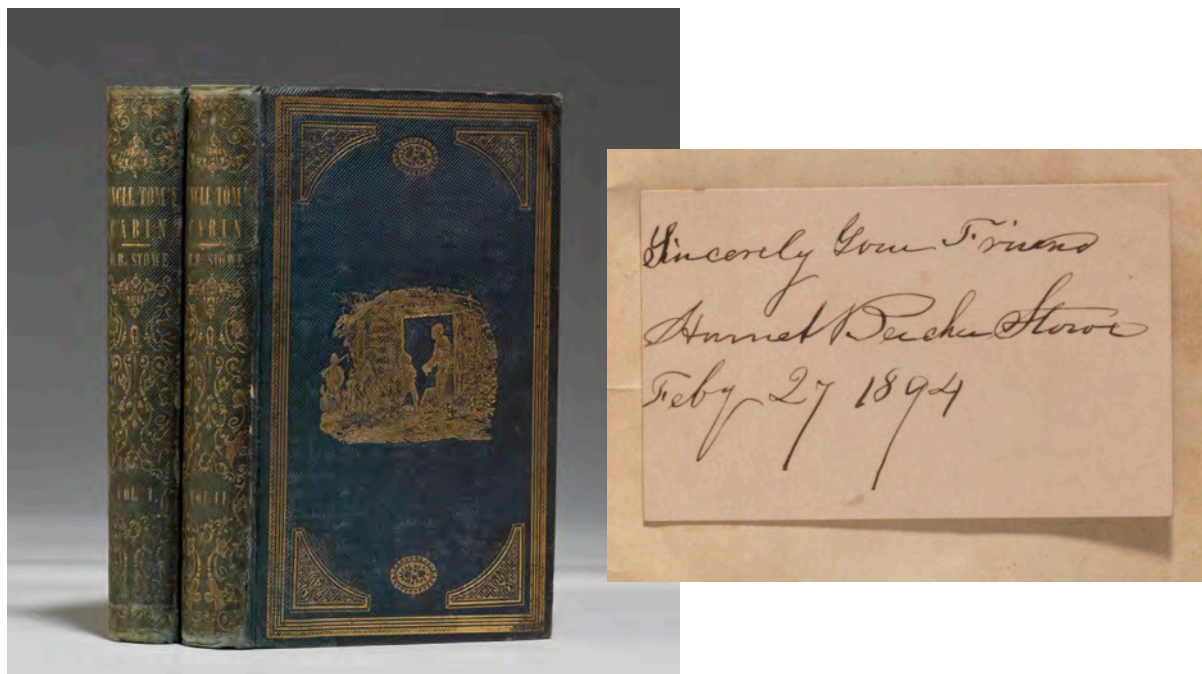 UNCLE TOM'S
CABIN
H.B. STOWE
VOL. I.
UNCLE TOM'S
CABIN
H.B. STOWE
VOL. II
Sincerely Your Friend
Harriet Beecher Stowe
Feby 27 1894